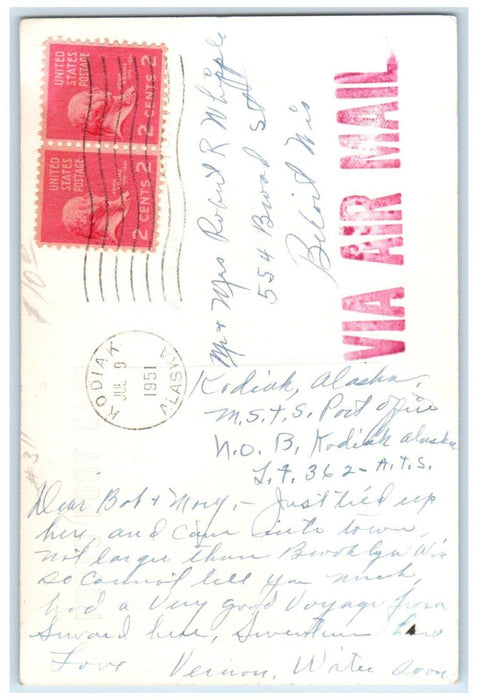 UNITED
STATES
POSTAGE
2 CENTS 2
UNITED
STATES
POSTAGE
2 CENTS 2
VIA AIR MAIL
Mr & Mrs Robert R Whipple
554 Bwood St
Beloit Wis
KODIAK
JUL 9
1951
ALASKA
Kodiak, Alaska,
M.S.T.S. Post office
N.O.B. Kodiak Alaska
L.T. 362 - A.T.S.
Dear Bob & Mary, - Just tied up
here, and came into town,
not larger than Brooklyn Wis
so cannot tell you much,
had a very good voyage from
Seward here,
Love Vernon, Write soon